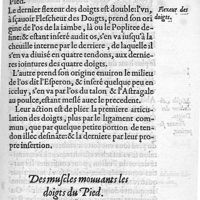 Pied.
Le dernier flexeur des doigts est double: l'vn,
à sçauoir Flescheur des Doigts, prend son ori
gine de l'os de la iambe, là où le Poplitee de-
nine: & estant inseré audit os, s'en va iusqu'à la
cheuille interne par derriere, de laquelle il
s'en va diuisé en quatre tendons, aux dernie-
res iointures des quatre doigts.
L'autre prend son origine enuiron le milieu
de l'os dit l'Esperon, & inseré quelque peu en
iceluy, s'en va par l'os du talon & l'Astragale
au poulce, estant meslé auec le precedent.
Leur action est de plier la premiere articu-
lation des doigts, plus par le ligament com-
mun, que par quelque particuliere portion de ten-
don illec desināte: & la derniere par leur pro-
pre insertion.
Flexeur des
doigts.
Des muscles mouuants les
doigts du Pied.